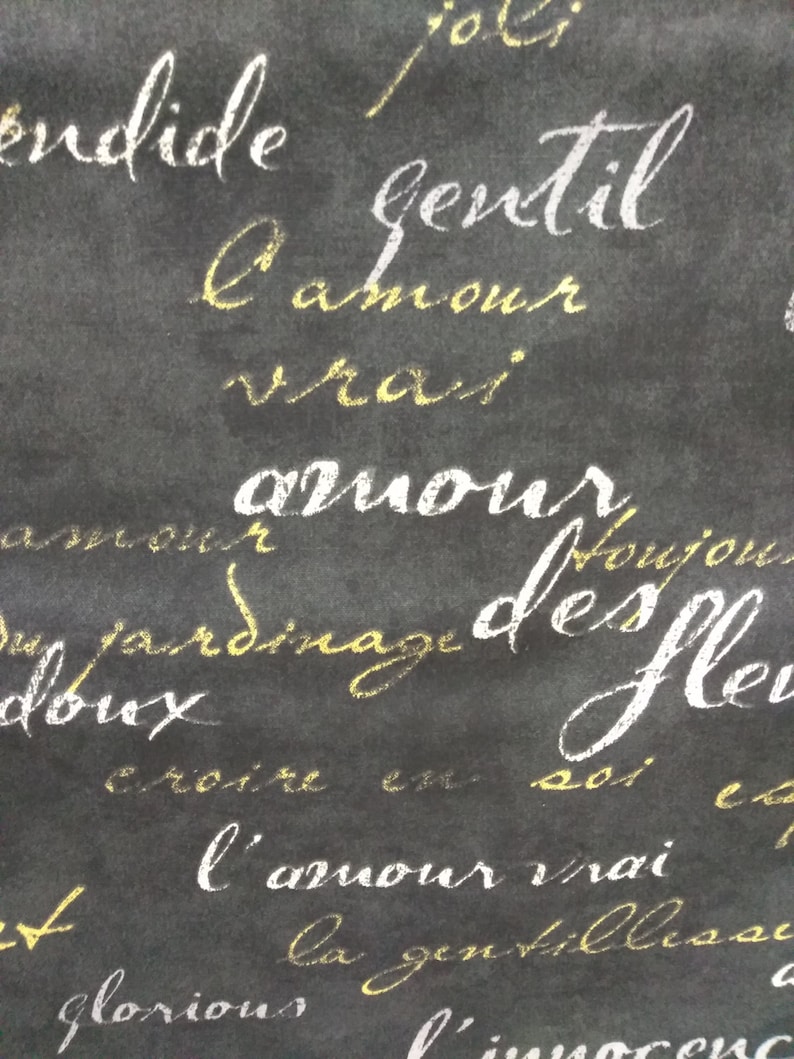 joli
endide
gentil
l'amour
vrai
amour
amour
toujou
des
du jardinage
fleu
doux
croire en soi
l'amour vrai
la gentillesse
glorious
l'innocenc